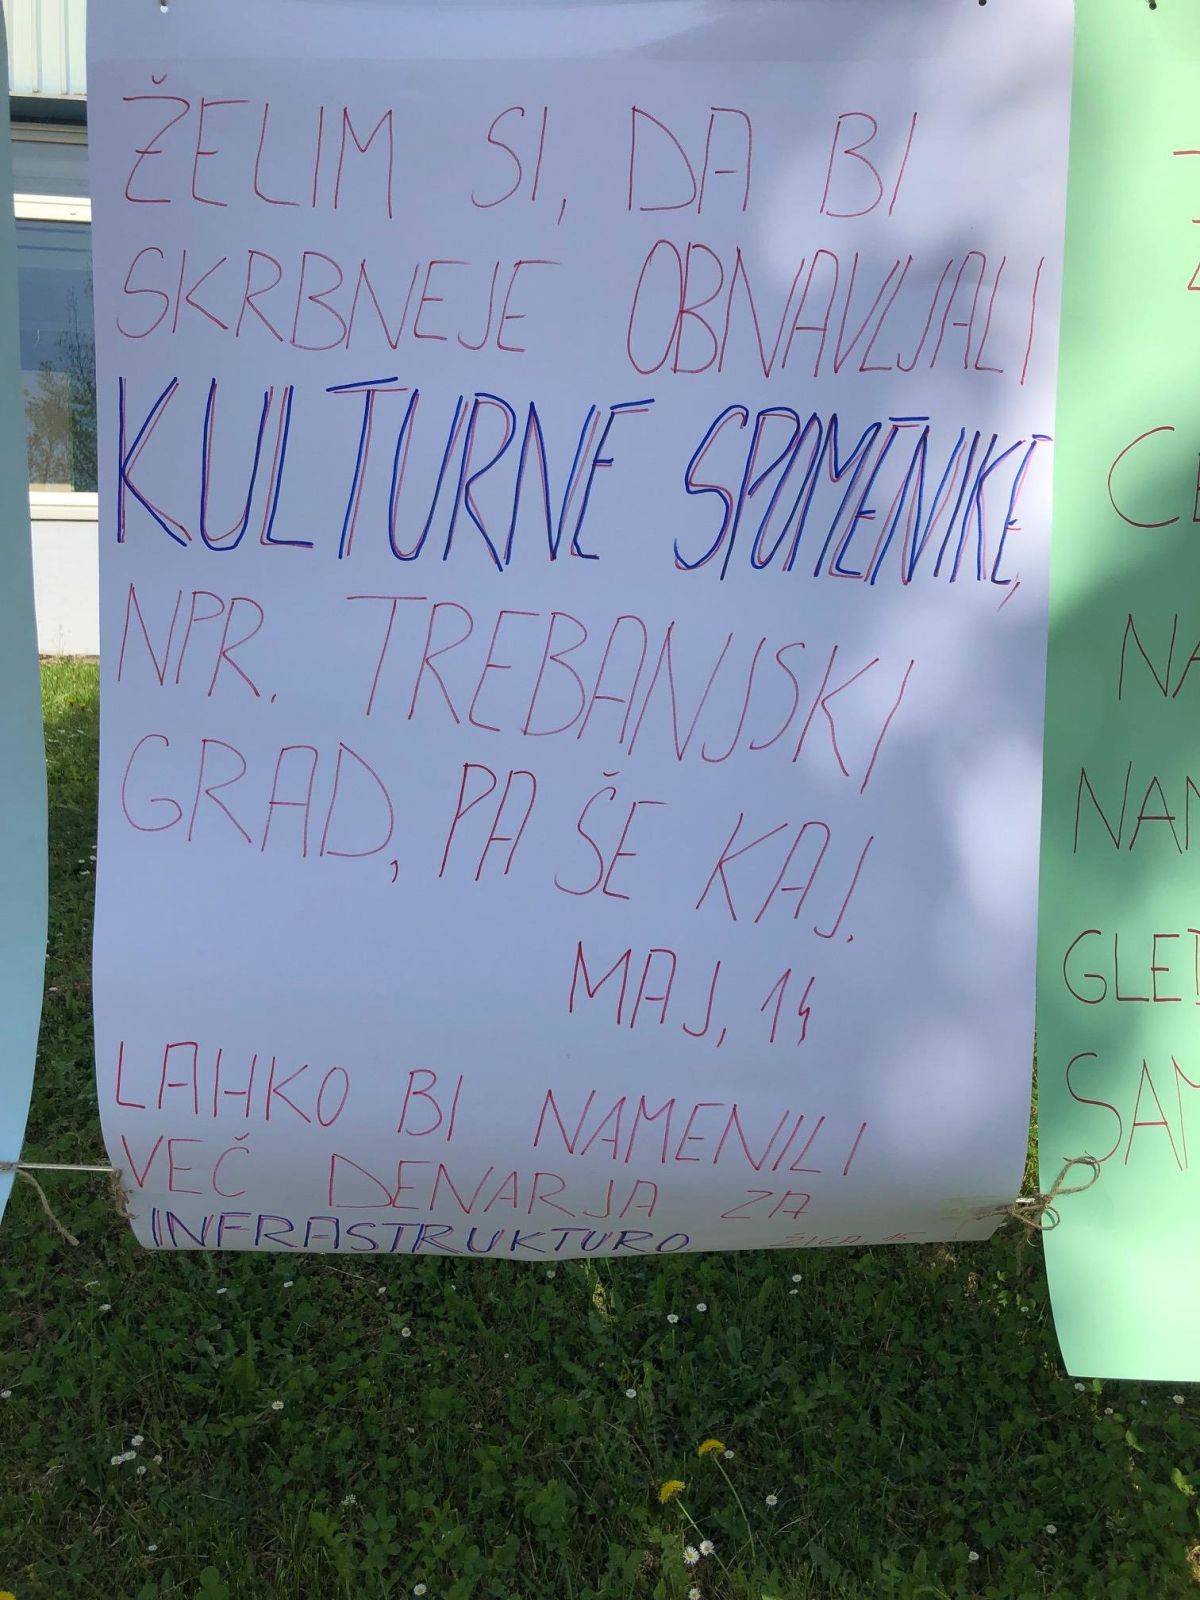 ŽELIM SI, DA BI
SKRBNEJE OBNAVLJALI
KULTURNE SPOMENIKE,
NPR. TREBANJSKI
GRAD, PA ŠE KAJ.
MAJ, 14
LAHKO BI NAMENILI
VEČ DENARJA ZA
INFRASTRUKTURO.
ŽIGA, 15
NA
GLED
SAM